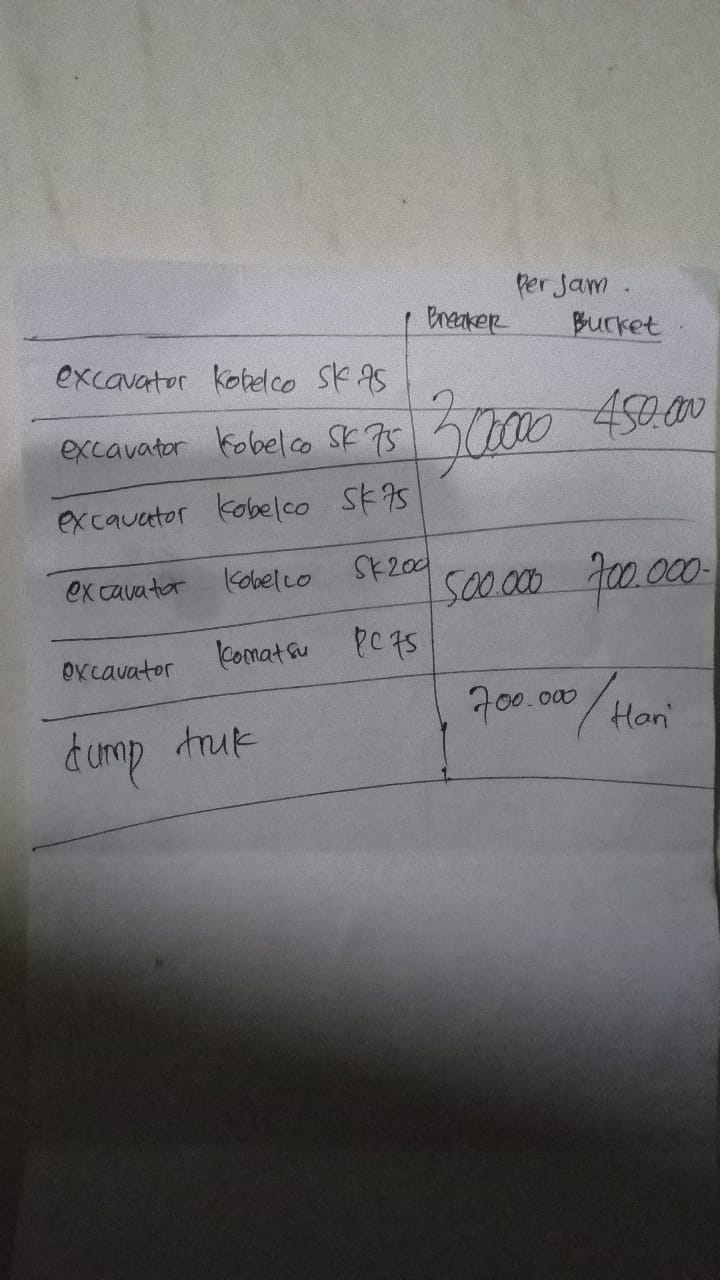 Per Jam.
Breaker Bucket
excavator Kobelco SK 75
excavator Kobelco SK 75 300.000 450.000
excavator Kobelco SK 75
excavator Kobelco SK 200 500.000 700.000-
excavator Komatsu PC 75
dump truk 700.000 / Hari